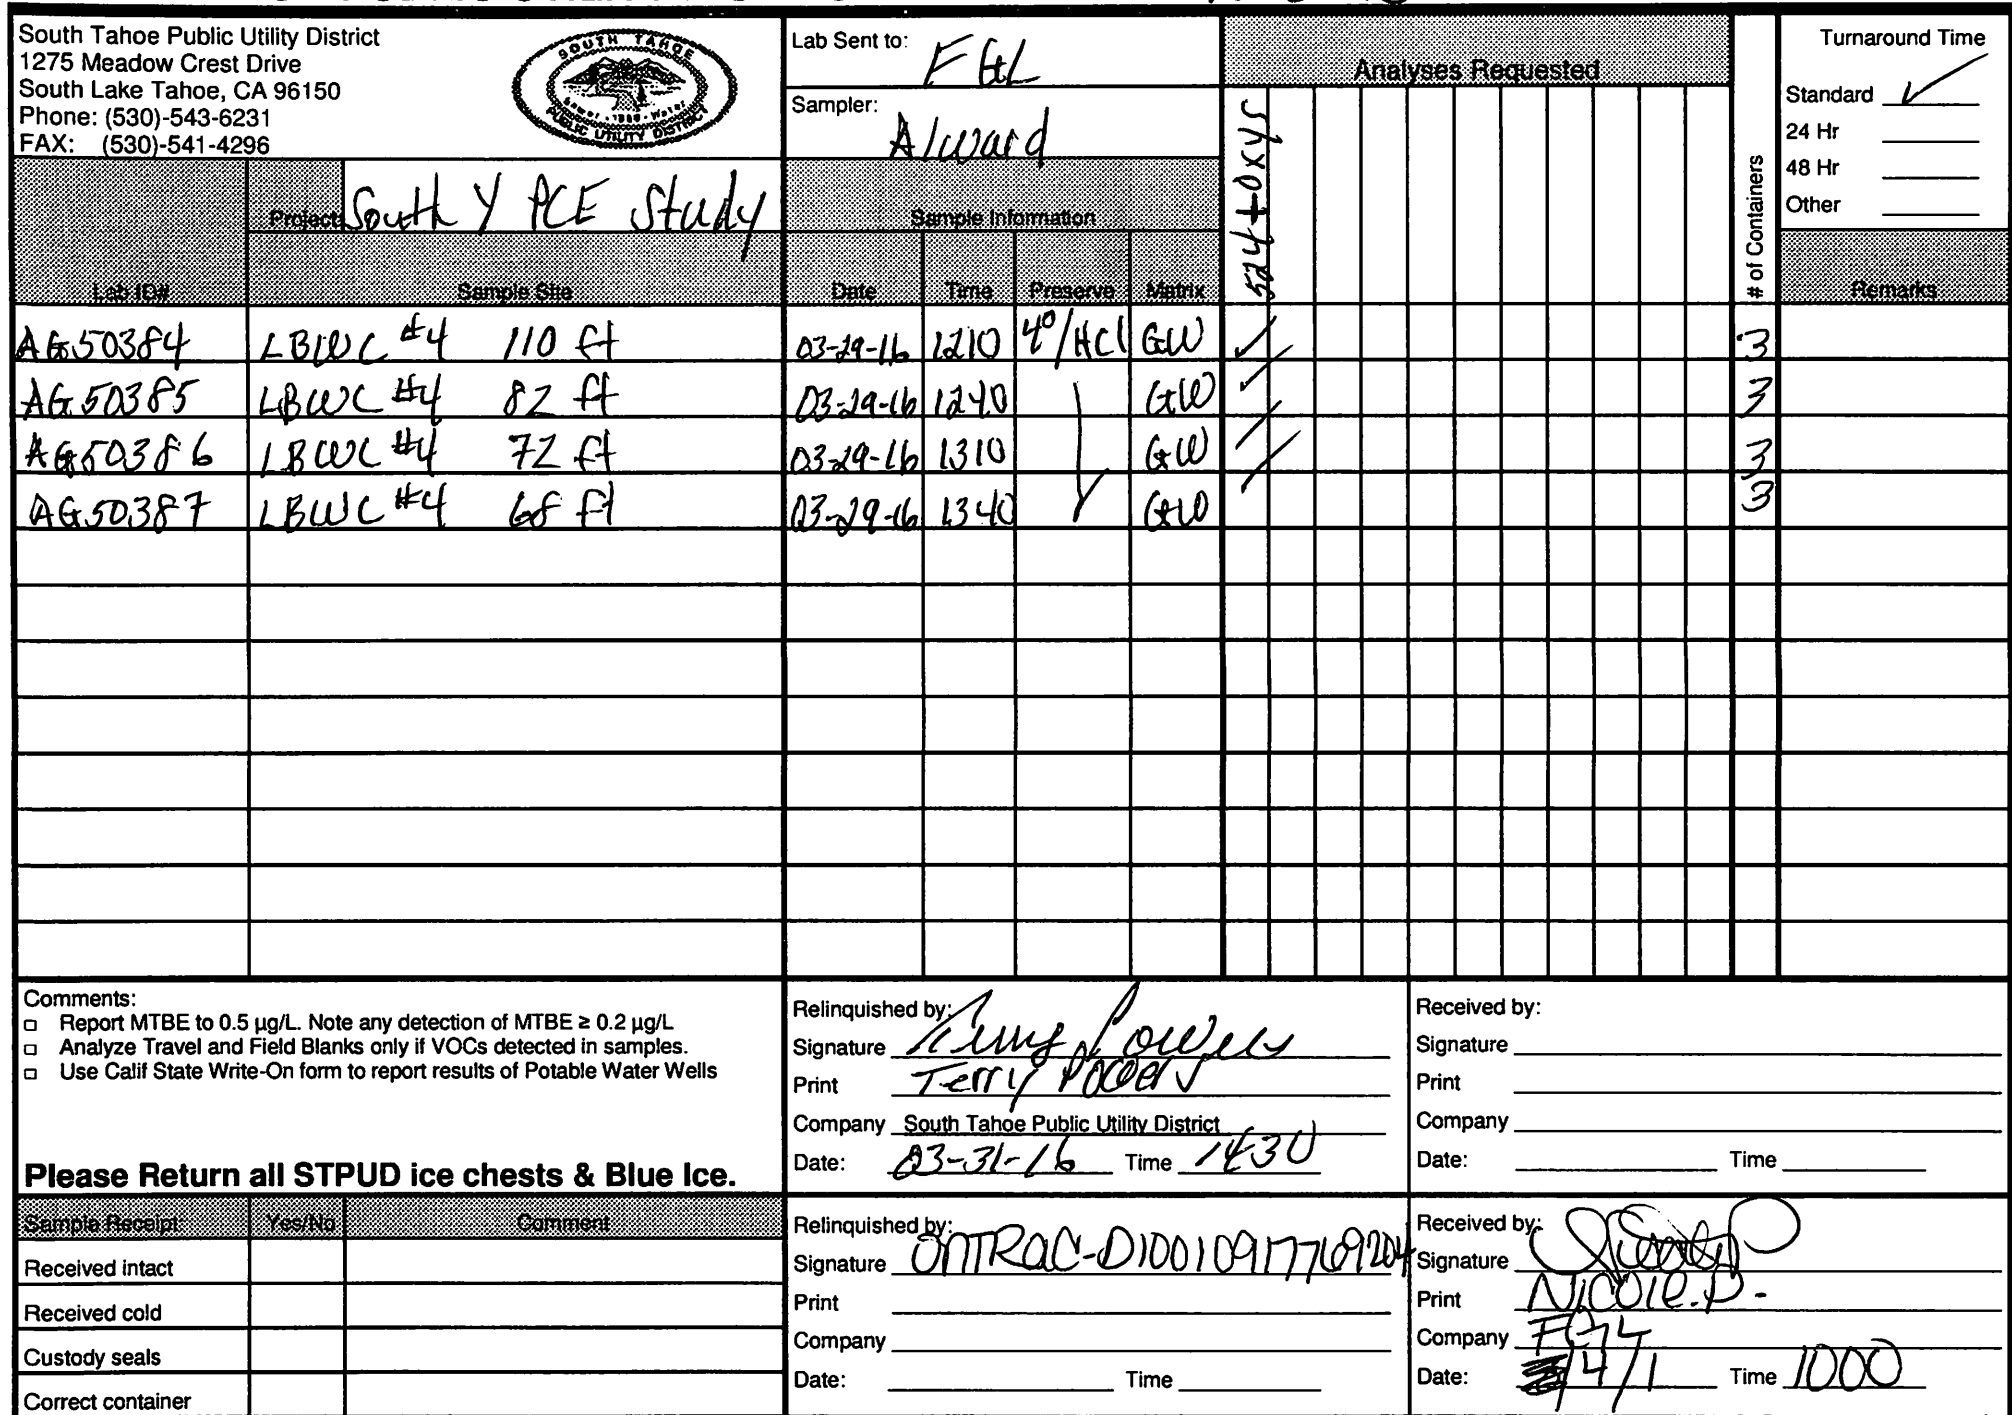 South Tahoe Public Utility District
1275 Meadow Crest Drive
South Lake Tahoe, CA 96150
Phone: (530)-543-6231
FAX: (530)-541-4296
SOUTH TAHOE
PUBLIC UTILITY DISTRICT
Lab Sent to: FGL
Sampler: Alward
Analyses Requested
524 + Oxys
# of Containers
Turnaround Time
Standard ✓
24 Hr
48 Hr
Other
Project: South Y PCE Study
Sample Information
Lab ID# Sample Site Date Time Preserve Matrix Remarks
AG50384 LBWC #4 110 ft 03-29-16 1210 4°/HCl GW ✓ 3
AG50385 LBWC #4 82 ft 03-29-16 1240 GW ✓ 3
AG50386 LBWC #4 72 ft 03-29-16 1310 GW ✓ 3
AG50387 LBWC #4 68 ft 03-29-16 1340 GW ✓ 3
Comments:
□ Report MTBE to 0.5 µg/L. Note any detection of MTBE ≥ 0.2 µg/L
□ Analyze Travel and Field Blanks only if VOCs detected in samples.
□ Use Calif State Write-On form to report results of Potable Water Wells
Please Return all STPUD ice chests & Blue Ice.
Relinquished by:
Signature Terry Powers
Print Terry Powers
Company South Tahoe Public Utility District
Date: 03-31-16 Time 1430
Received by:
Signature
Print
Company
Date: Time
Sample Receipt Yes/No Comment
Received intact
Received cold
Custody seals
Correct container
Relinquished by:
Signature ONTRAC-D10010917769204
Print
Company
Date: Time
Received by:
Signature
Print Nicole.P.
Company FGL
Date: 4/1 Time 1000